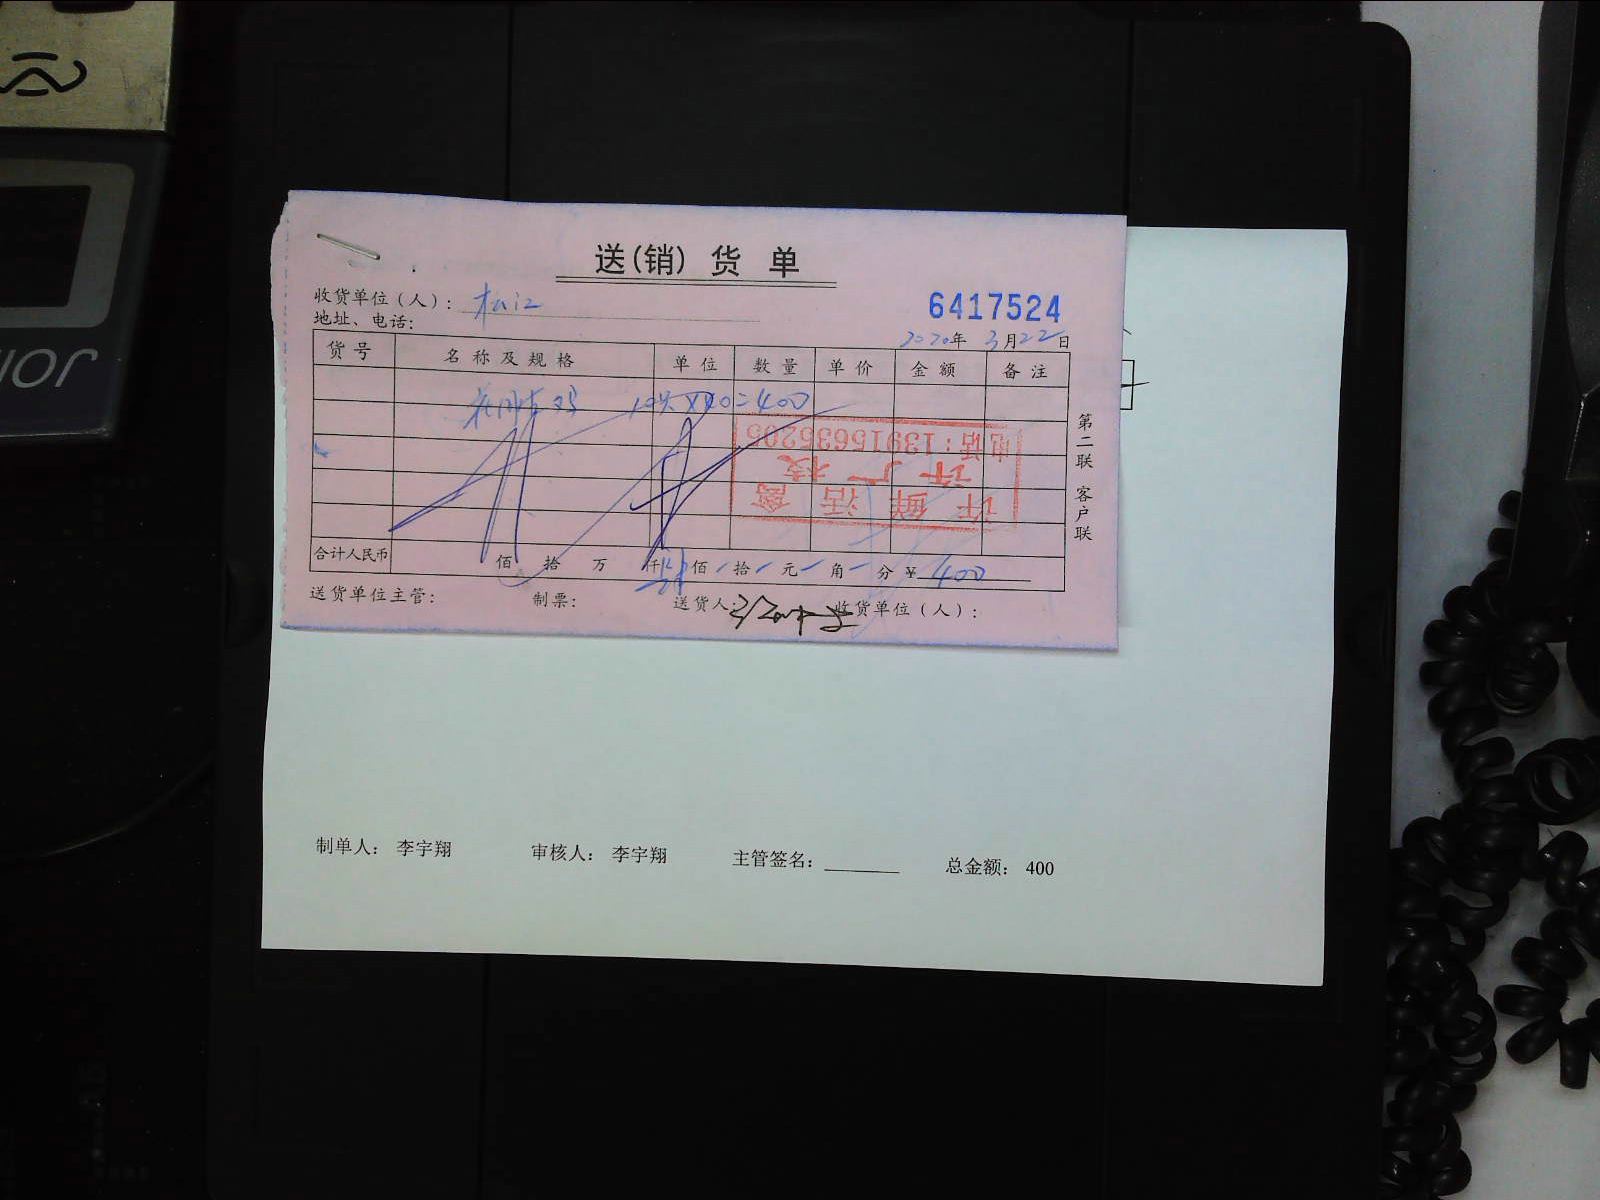 送(销) 货 单
收货单位(人): 松江
6417524
地址、电话:
2020年 3月22日
货号 名称及规格 单位 数量 单价 金额 备注
10只×40=400
电话:13915635205
许广枝
许鲜活禽
第二联 客户联
合计人民币 佰 拾 万 仟 肆佰 拾 元 角 分 ¥ 400
送货单位主管: 制票: 送货人: 收货单位(人):
制单人: 李宇翔 审核人: 李宇翔 主管签名: 总金额: 400